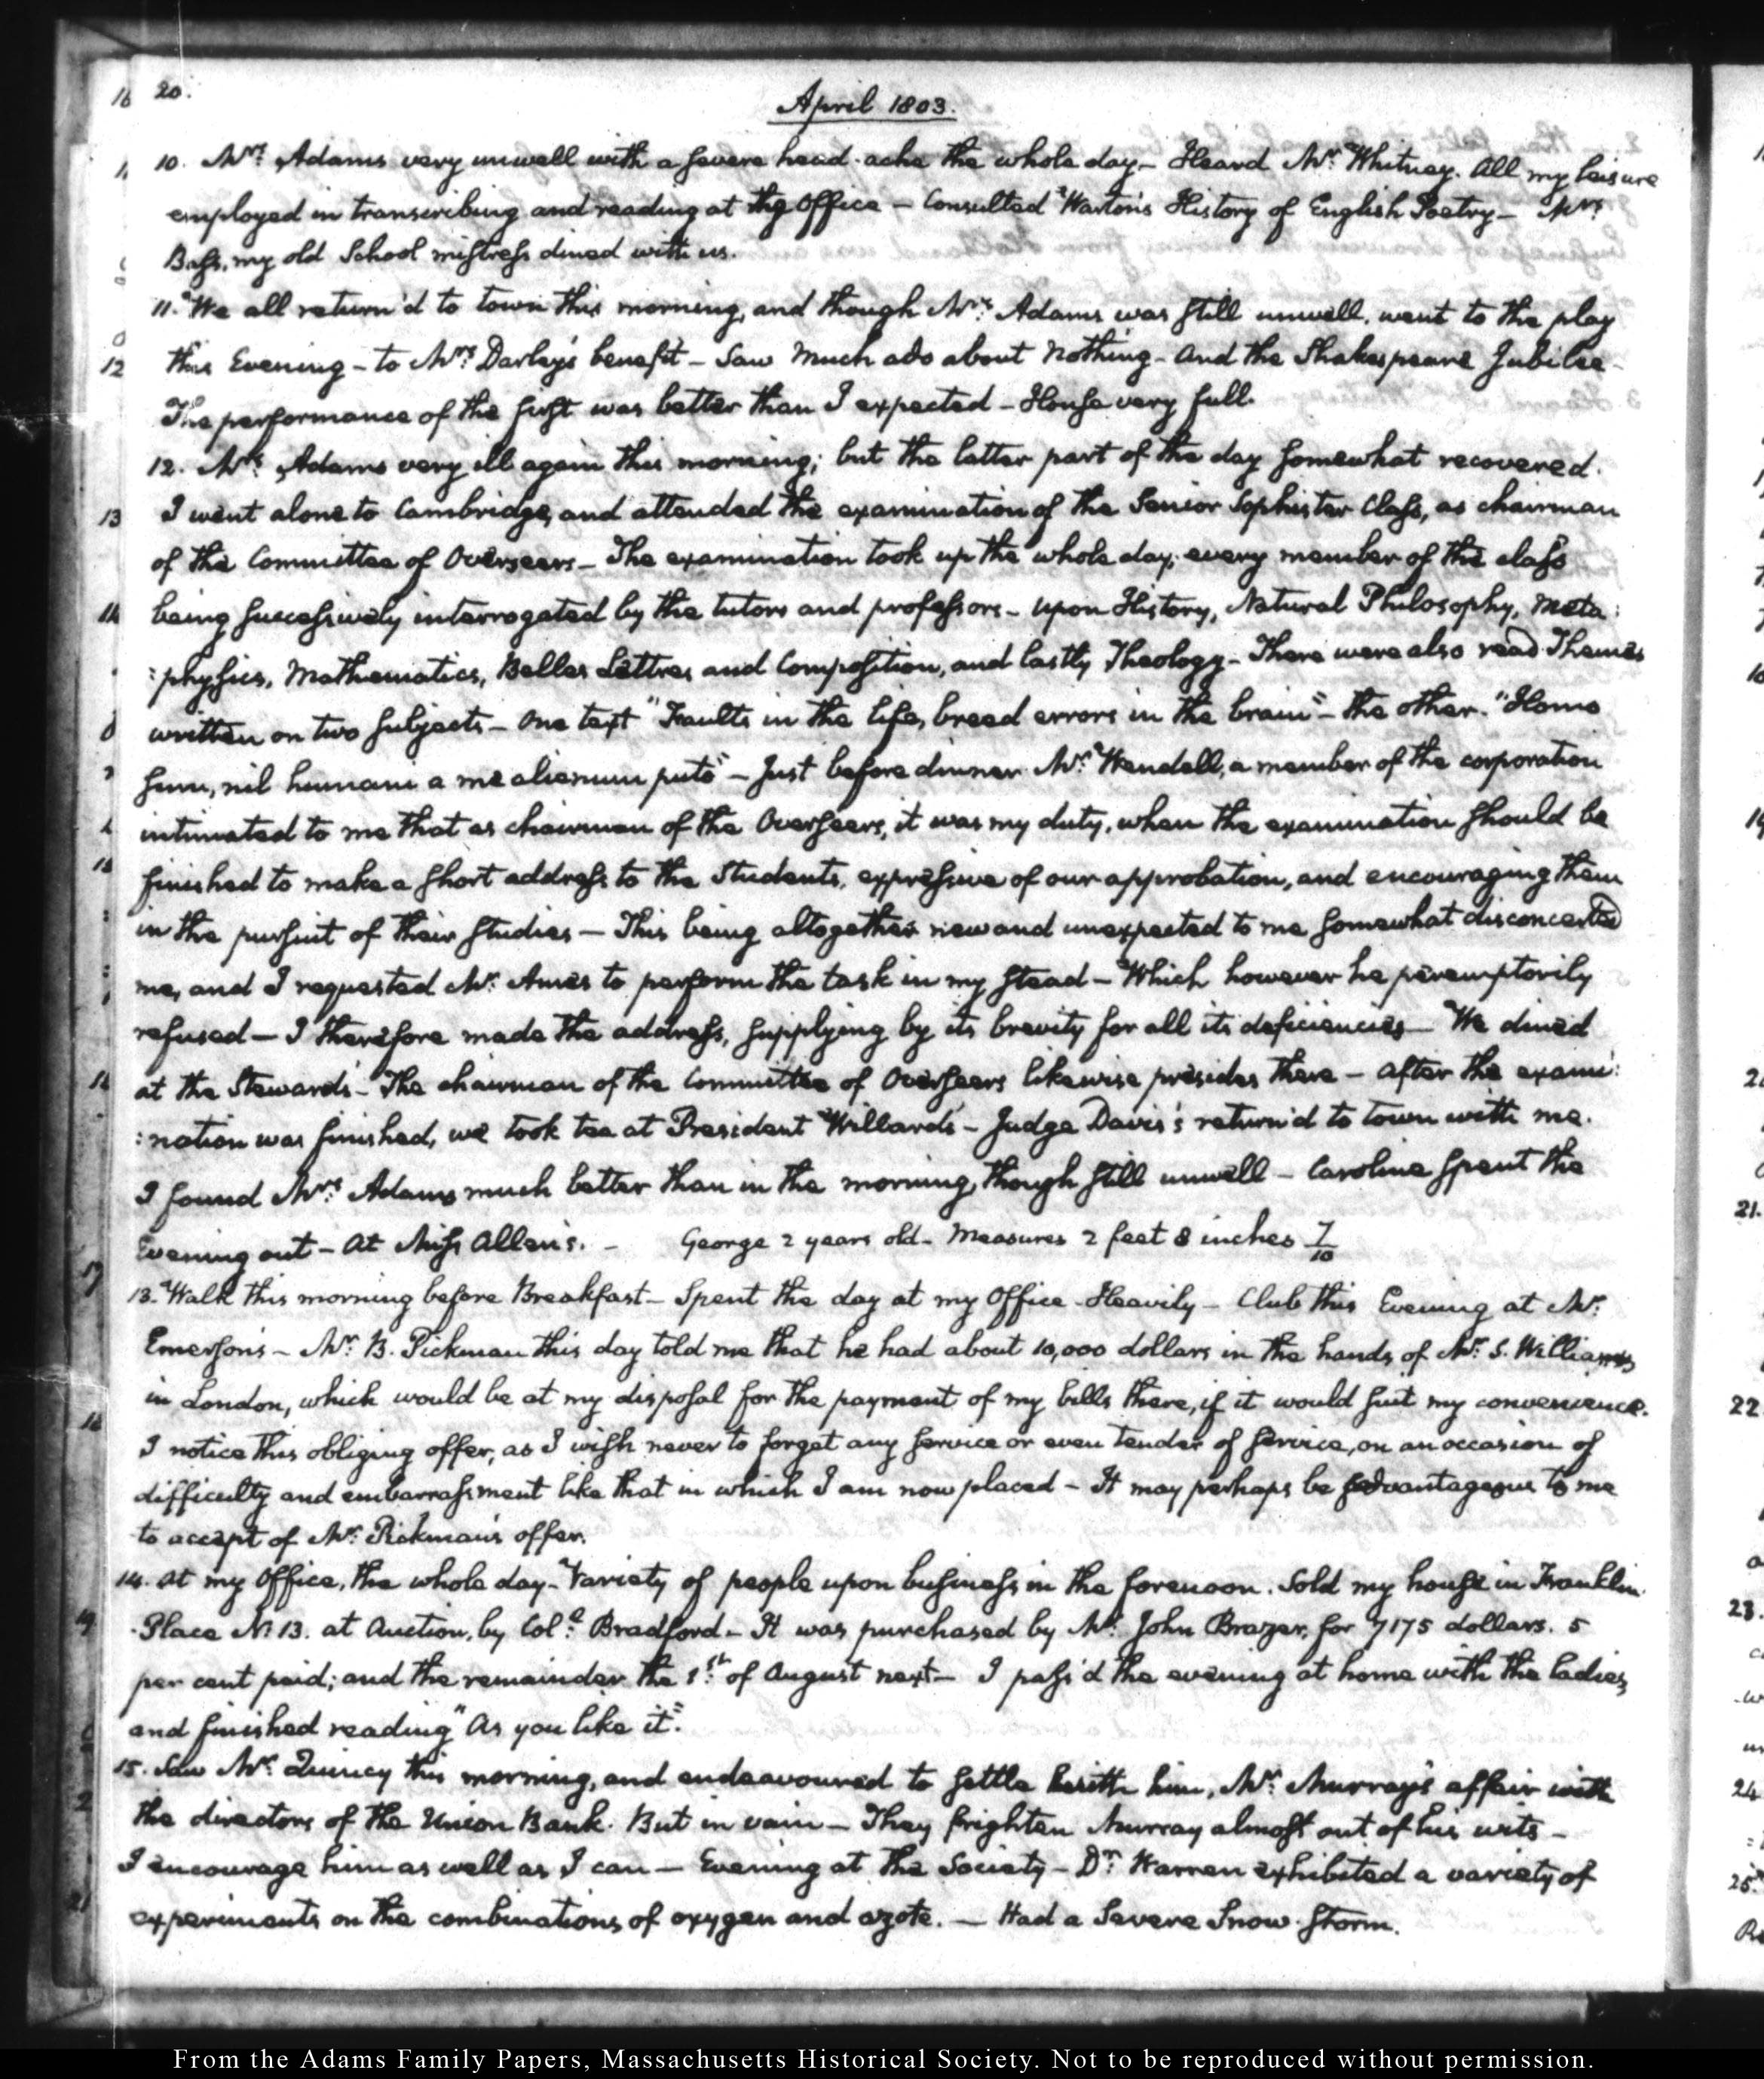 20.
April 1803.
10. Mrs: Adams very unwell with a severe head-ache the whole day— Heard Mr: Whitney. All my leisure
employed in transcribing and reading at the Office — Consulted Warton's History of English Poetry — Mrs:
Bass, my old School mistress dined with us.
11. We all return'd to town this morning, and though Mrs: Adams was still unwell, went to the play
this Evening — to Mrs: Darley's benefit — Saw Much ado about Nothing — And the Shakespeare Jubilee—
The performance of the first was better than I expected — House very full.
12. Mrs: Adams very ill again this morning; but the latter part of the day somewhat recovered.
I went alone to Cambridge, and attended the examination of the Senior Sophister Class, as chairman
of the Committee of Overseers — The examination took up the whole day; every member of the class
being successively interrogated by the tutors and professors — upon History, Natural Philosophy, Meta:
:physics, Mathematics, Belles Lettres and Composition, and lastly Theology — There were also read Themes
written on two subjects — One text "Faults in the life, breed errors in the brain" — the other. "Homo
sum, nil humani a me alienum puto" — Just before dinner Mr: Wendell, a member of the corporation
intimated to me that as chairman of the Overseers, it was my duty, when the examination should be
finished to make a short address to the Students, expressive of our approbation, and encouraging them
in the pursuit of their studies — This being altogether new and unexpected to me somewhat disconcerted
me, and I requested Mr: Ames to perform the task in my stead — Which however he peremptorily
refused — I therefore made the address, supplying by its brevity for all its deficiencies — We dined
at the Stewards' — The chairman of the Committee of Overseers likewise presides there — After the exami:
:nation was finished, we took tea at President Willard's — Judge Davis's return'd to town with me.
I found Mrs: Adams much better than in the morning, though still unwell — Caroline spent the
Evening out — At Miss Allen's. — George 2 years old — Measures 2 feet 8 inches 7/10
13. Walk this morning before Breakfast — Spent the day at my Office — Heavily — Club this Evening at Mr:
Emerson's — Mr: B. Pickman this day told me that he had about 10,000 dollars in the hands of Mr: S. Williams
in London, which would be at my disposal for the payment of my bills there, if it would suit my convenience.
I notice this obliging offer, as I wish never to forget any service or even tender of service, on an occasion of
difficulty and embarrassment like that in which I am now placed — It may perhaps be advantageous to me
to accept of Mr: Pickman's offer.
14. At my Office, the whole day — Variety of people upon business in the forenoon. Sold my house in Franklin
Place N: 13. at Auction, by Coll: Bradford — It was purchased by Mr: John Brazer, for 7175 dollars. 5
per cent paid; and the remainder the 1st: of August next — I pass'd the evening at home with the ladies,
and finished reading "As you like it".
15. Saw Mr: Quincy this morning, and endeavoured to settle with him, Mr: Murray's affair with
the directors of the Union Bank. But in vain — They frighten Murray almost out of his wits —
I encourage him as well as I can — Evening at the Society — Dr: Warren exhibited a variety of
experiments on the combinations of oxygen and azote. — Had a Severe Snow-storm.
From the Adams Family Papers, Massachusetts Historical Society. Not to be reproduced without permission.